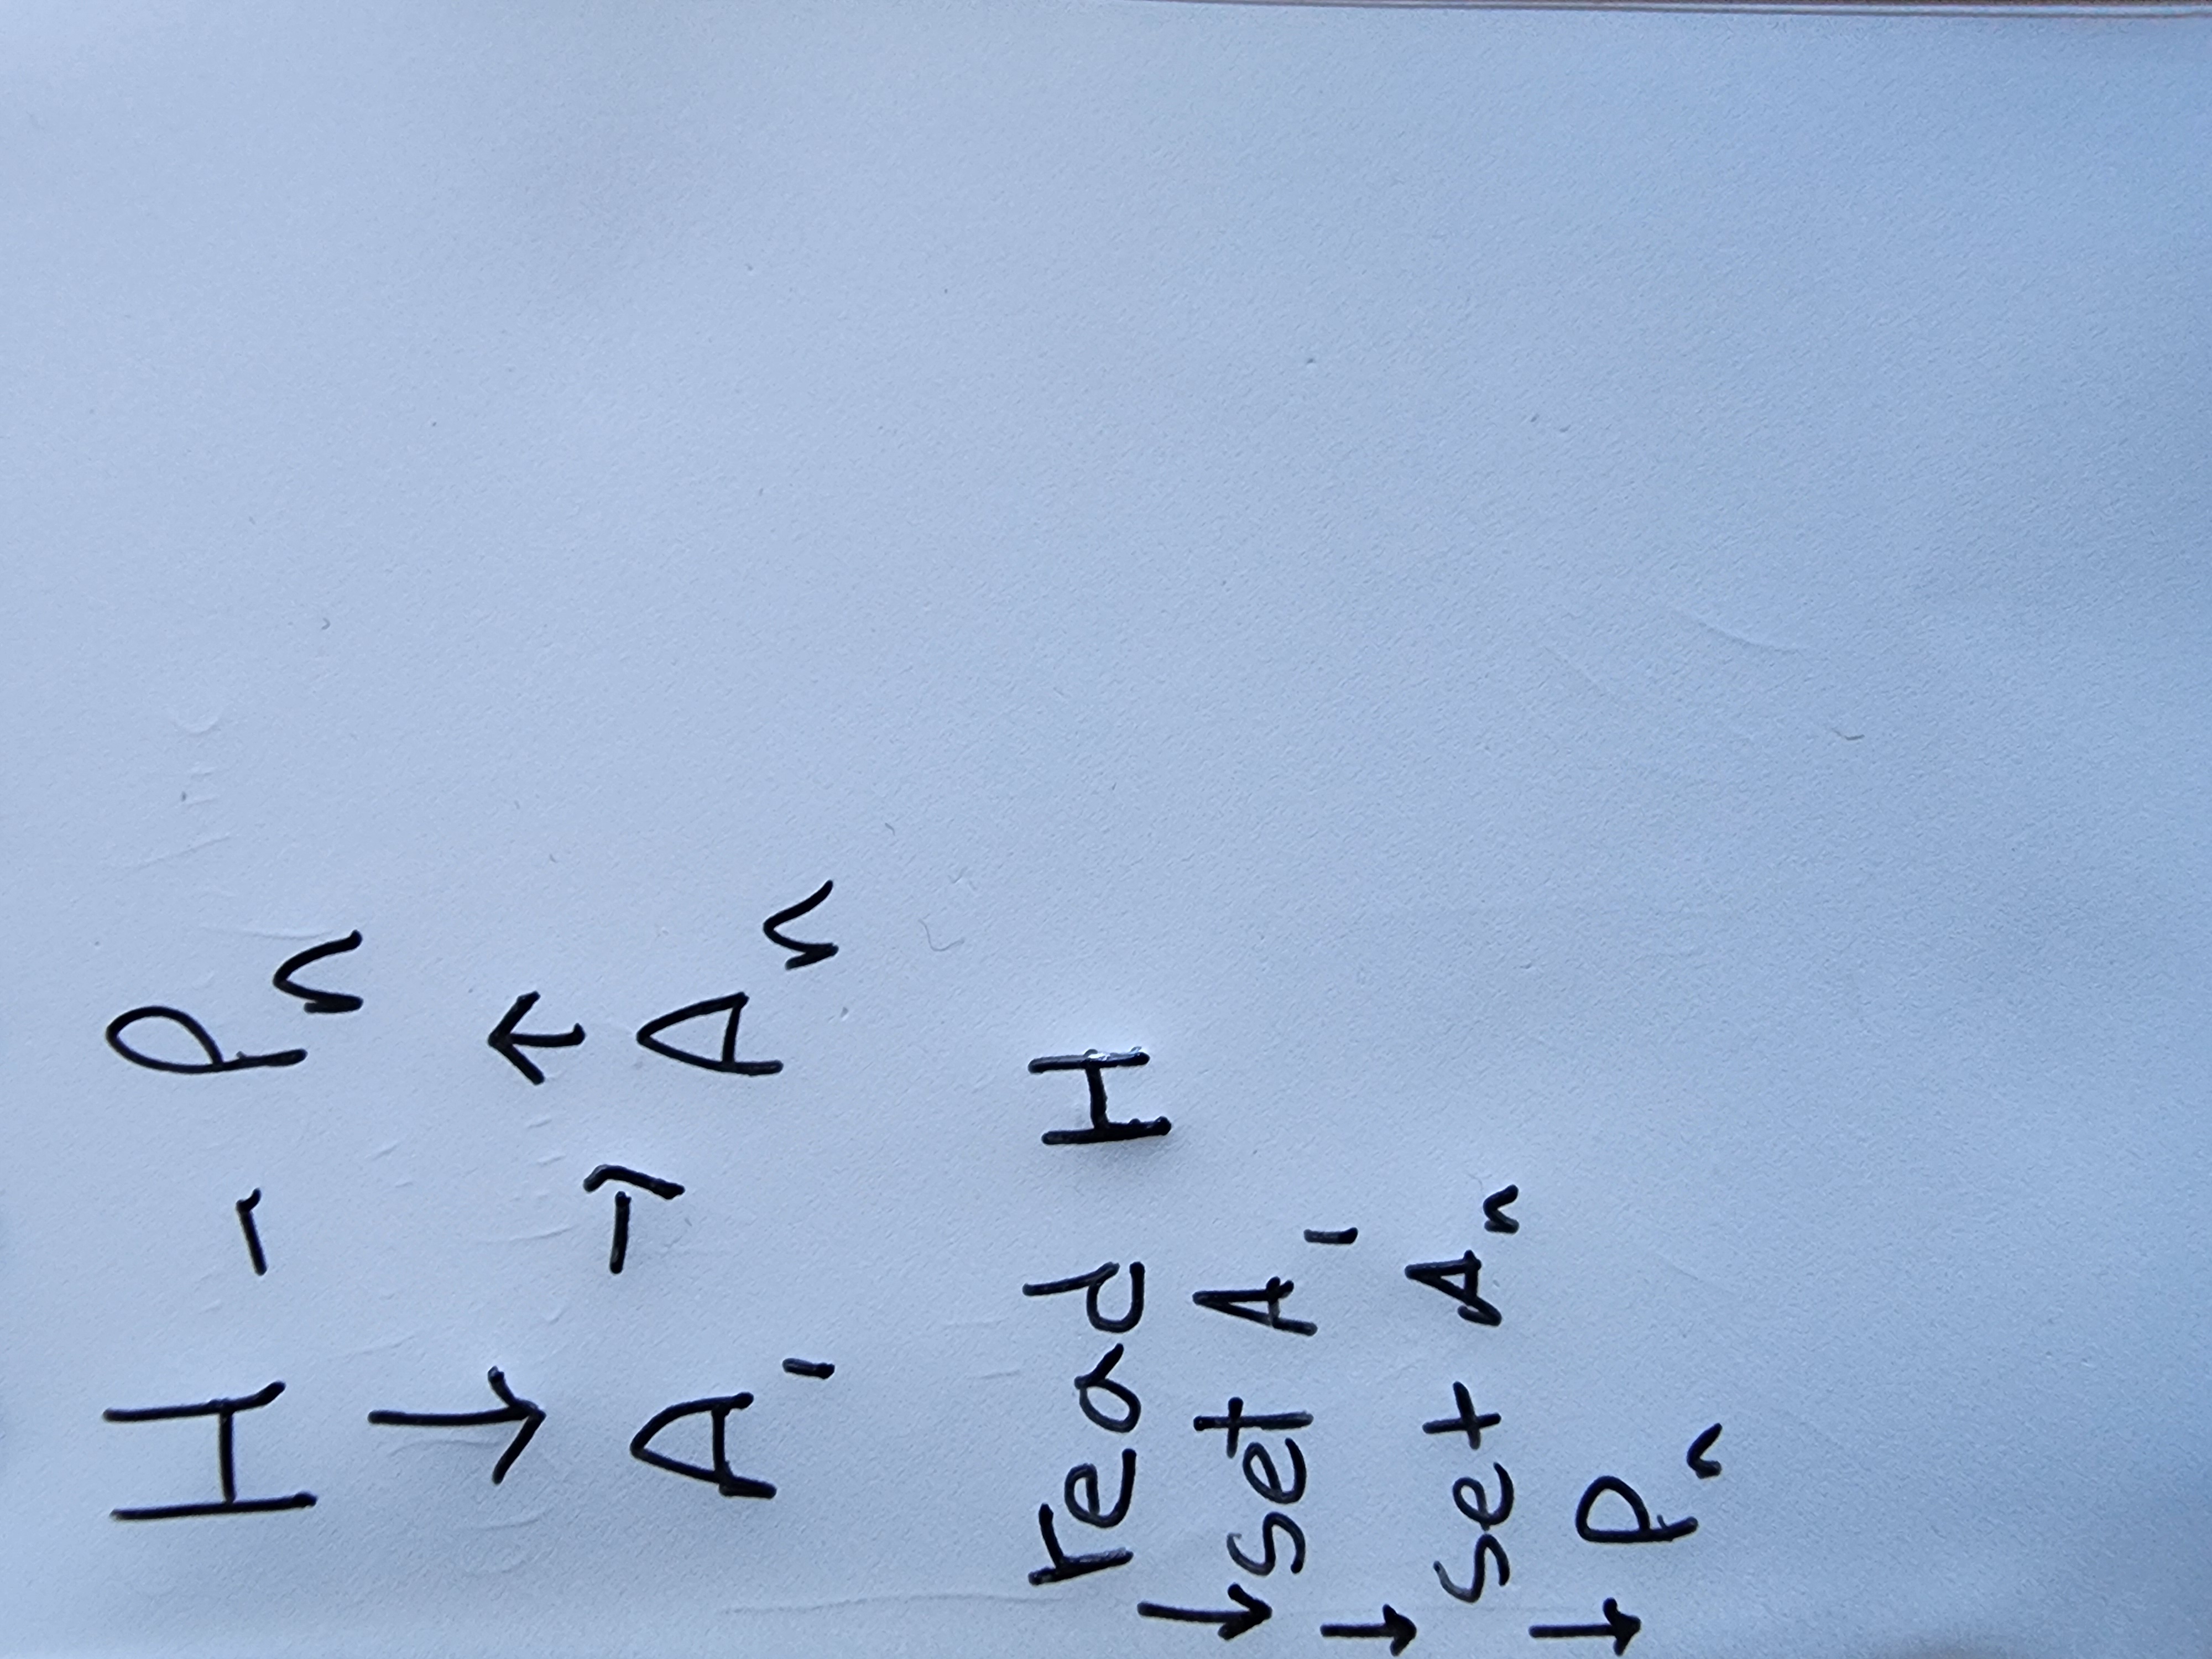 H - Pn
↓ ↑
→
A1 An
read H
↓ set A1
↓ set An
↓ Pn